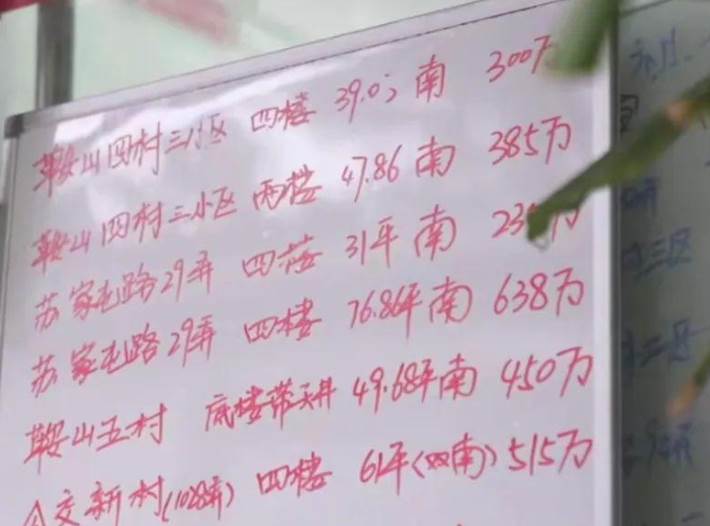 鞍山四村三小区 四楼 39.0 南 300万
鞍山四村三小区 两楼 47.86 南 385万
苏家屯路29弄 四楼 31平 南 23 万
苏家屯路29弄 四楼 76.86平 南 638万
鞍山五村 底楼带天井 49.68平 南 450万
交新村(1028弄) 四楼 61平(双南) 515万